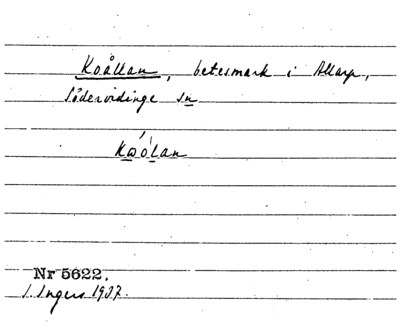 Koållan, betesmark i Allarp,
Södervidinge sn
Kɷ́ólan
Nr 5622.
I. Ingers 1937.